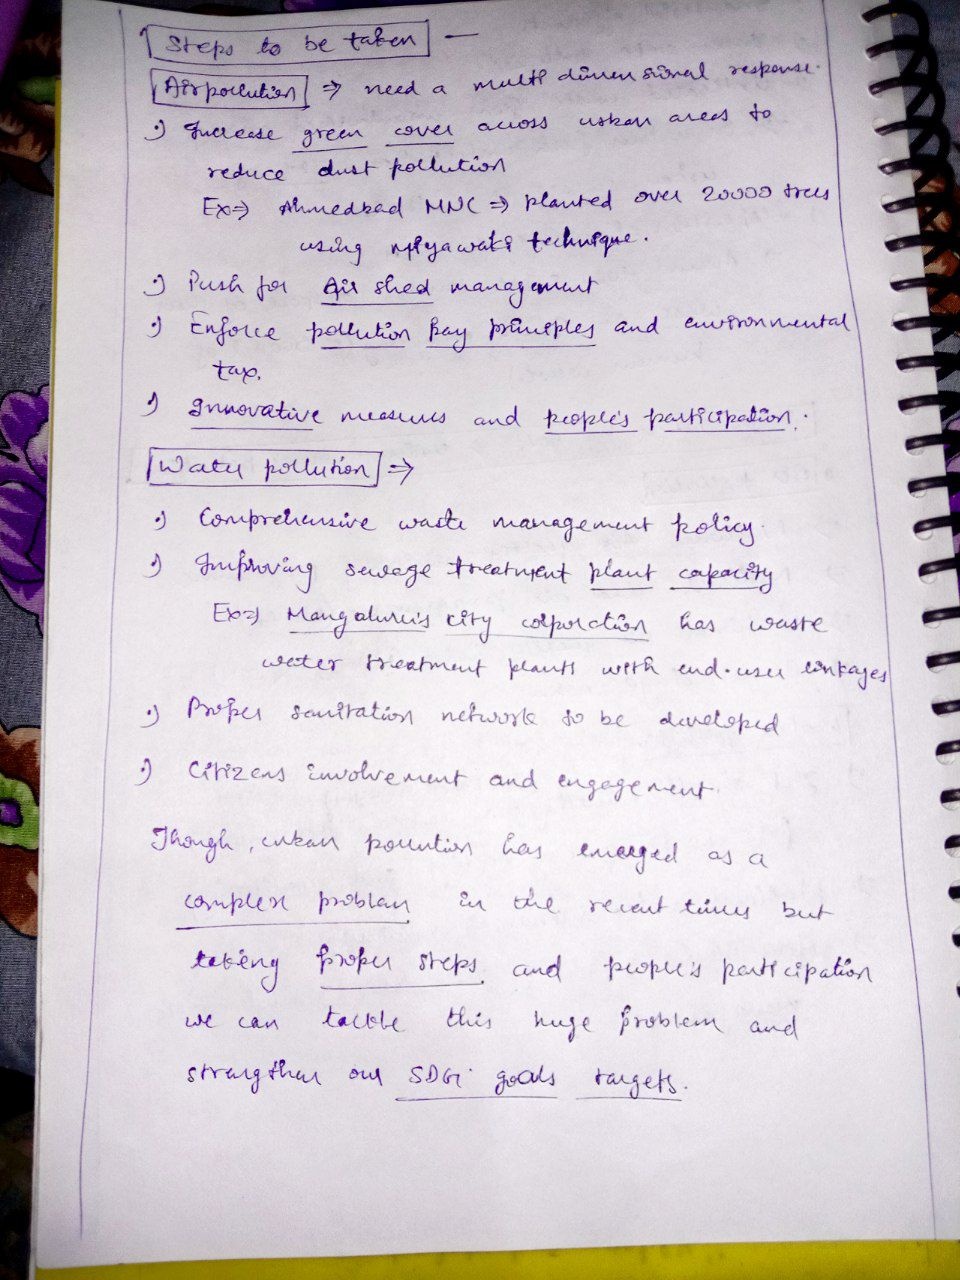 Steps to be taken —
Air pollution ⇒ need a multi dimensional response.
•) Increase green cover across urban areas to
reduce dust pollution
Ex⇒ Ahmedbad MNC ⇒ planted over 20000 trees
using miyawaki technique.
•) Push for Air shed management
•) Enforce pollution pay principles and environmental
tax.
•) Innovative measures and people's participation.
Water pollution ⇒
•) Comprehensive waste management policy.
•) Improving sewage treatment plant capacity
Ex⇒ Mangaluru's city corporation has waste
water treatment plants with end-user linkages
•) Proper sanitation network to be developed
•) Citizens involvement and engagement.
Though, urban pollution has emerged as a
complex problem in the recent times but
taking proper steps and people's participation
we can tackle this huge problem and
strengthen our SDG goals targets.